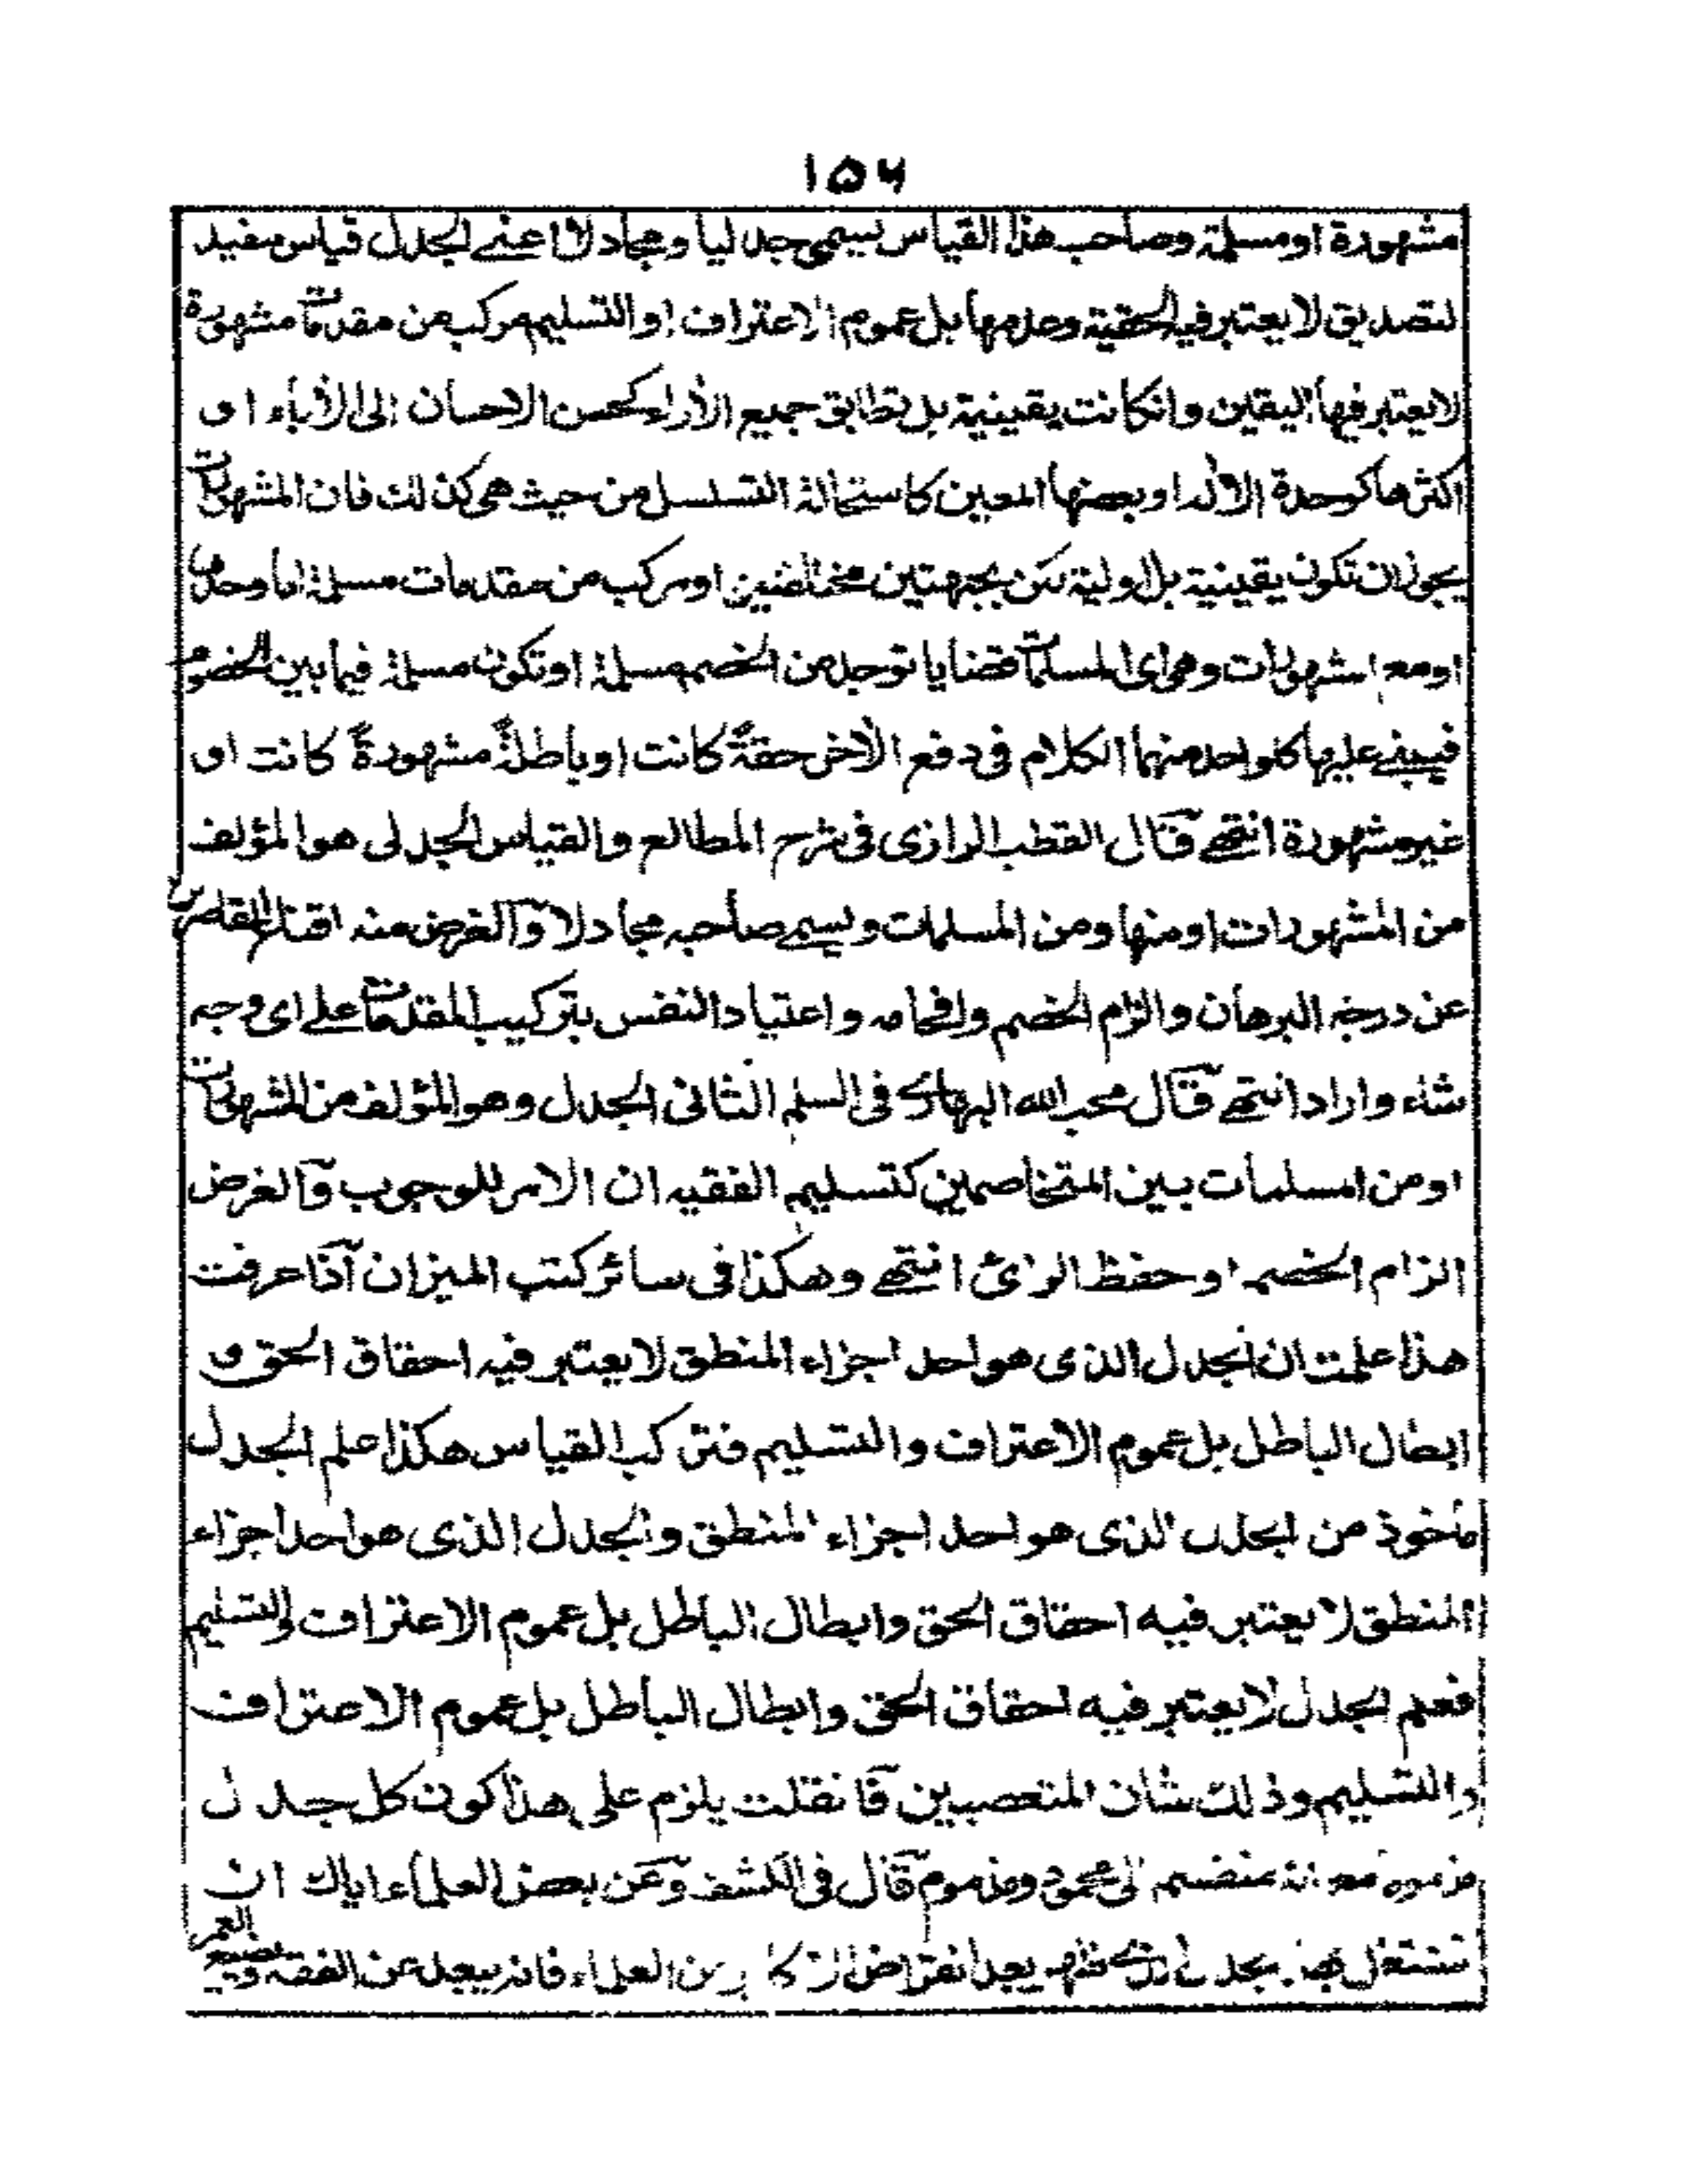 ۱۵۶
مشهورة او مسلمة وصاحب هذا القياس يسمى جدليا ومجادلا اعنى الجدل قياس مفيد
لتصديق لا يعتبر فيه الحقية وعدمها بل عموم الاعتراف او التسليم مركب من مقدمات مشهورة
لا يعتبر فيها اليقين وانكانت يقينية بل تطابق جميع الأراء كحسن الاحسان الى الأباء او
اكثرها كوحدة الاله او بعضها المعين كاستحالة التسلسل من حيث هى كذلك فان المشهورات
يجوز ان تكون يقينية بل اولية لكن بجهتين مختلفتين او مركب من مقدمات مسلمة اما وحدها
او مع المشهورات وهى اى المسلمات قضايا توجد من الخصم مسلمة او تكون مسلمة فيما بين الخصوم
فيبنى عليها كلواحد منهما الكلام فى دفع الأخر حقةً كانت او باطلةً مشهورةً كانت او
غير مشهورة انتهى قال القطب الرازى فى شرح المطالع والقياس الجدلى هو المؤلف
من المشهورات او منها ومن المسلمات ويسمى صاحبه مجادلا والغرض منه اقناع القاصرين
عن درجة البرهان والزام الخصم وافحامه واعتياد النفس بتركيب المقدمات على اى وجه
شاء واراد انتهى قال محب الله البهارى فى السلم الثانى الجدل وهو المؤلف من المشهورات
او من المسلمات بين المتخاصمين كتسليم الفقيه ان الامر للوجوب والغرض
الزام الخصم او حفظ الرائ انتهى وهكذا فى سائر كتب الميزان اذا عرفت
هذا علمت ان الجدل الذى هو احد اجزاء المنطق لا يعتبر فيه احقاق الحق و
ابطال الباطل بل عموم الاعتراف والتسليم فتركب القياس هكذا علم الجدل
مأخوذ من الجدل الذى هو احد اجزاء المنطق والجدل الذى هو احد اجزاء
المنطق لا يعتبر فيه احقاق الحق وابطال الباطل بل عموم الاعتراف والتسليم
فعلم الجدل لا يعتبر فيه احقاق الحق وابطال الباطل بل عموم الاعتراف
والتسليم وذلك شان المتعصبين فانقلت يلزم على هذا كون كل جدل
مذموم مع انه منقسم الى محمود ومذموم قال فى الكشف وعن بعض العلماء اياك ان
تشتغل بهذا الجدل الذى ظهر بعد انقراض الاكابر من العلماء فانه يبعد عن الفقه ويضيع العمر